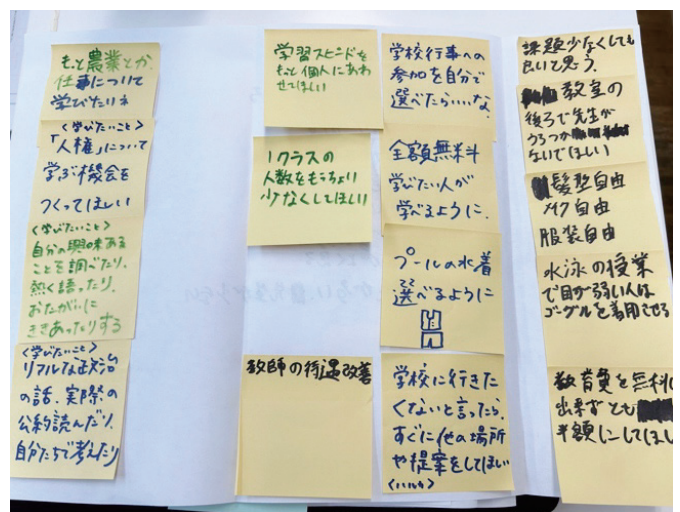 もっと農業とか、
仕事について
学びたいネ
<学びたいこと>
「人権」について
学ぶ機会を
つくってほしい
<学びたいこと>
自分の興味ある
ことを調べたり、
熱く語ったり、
おたがいに
ききあったりする
<学びたいこと>
リアルな政治
の話、実際の
公約読んだり、
自分たちで考えたり
学習スピードを
もっと個人にあわ
せてほしい
1クラスの
人数をもうちょい
少なくしてほしい
教師の待遇改善
学校行事への
参加を自分で
選べたらいいな。
全額無料
学びたい人が
学べるように.
プールの水着
選べるように
学校に行きた
くないと言ったら、
すぐに他の場所
や提案をしてほしい
課題少なくしても
良いと思う。
教室の
後ろで先生が
うろつか
ないでほしい
髪型自由
メイク自由
服装自由
水泳の授業
で目が弱い人は
ゴーグルを着用させる
教育費を無料に
出来ずとも
半額にしてほし